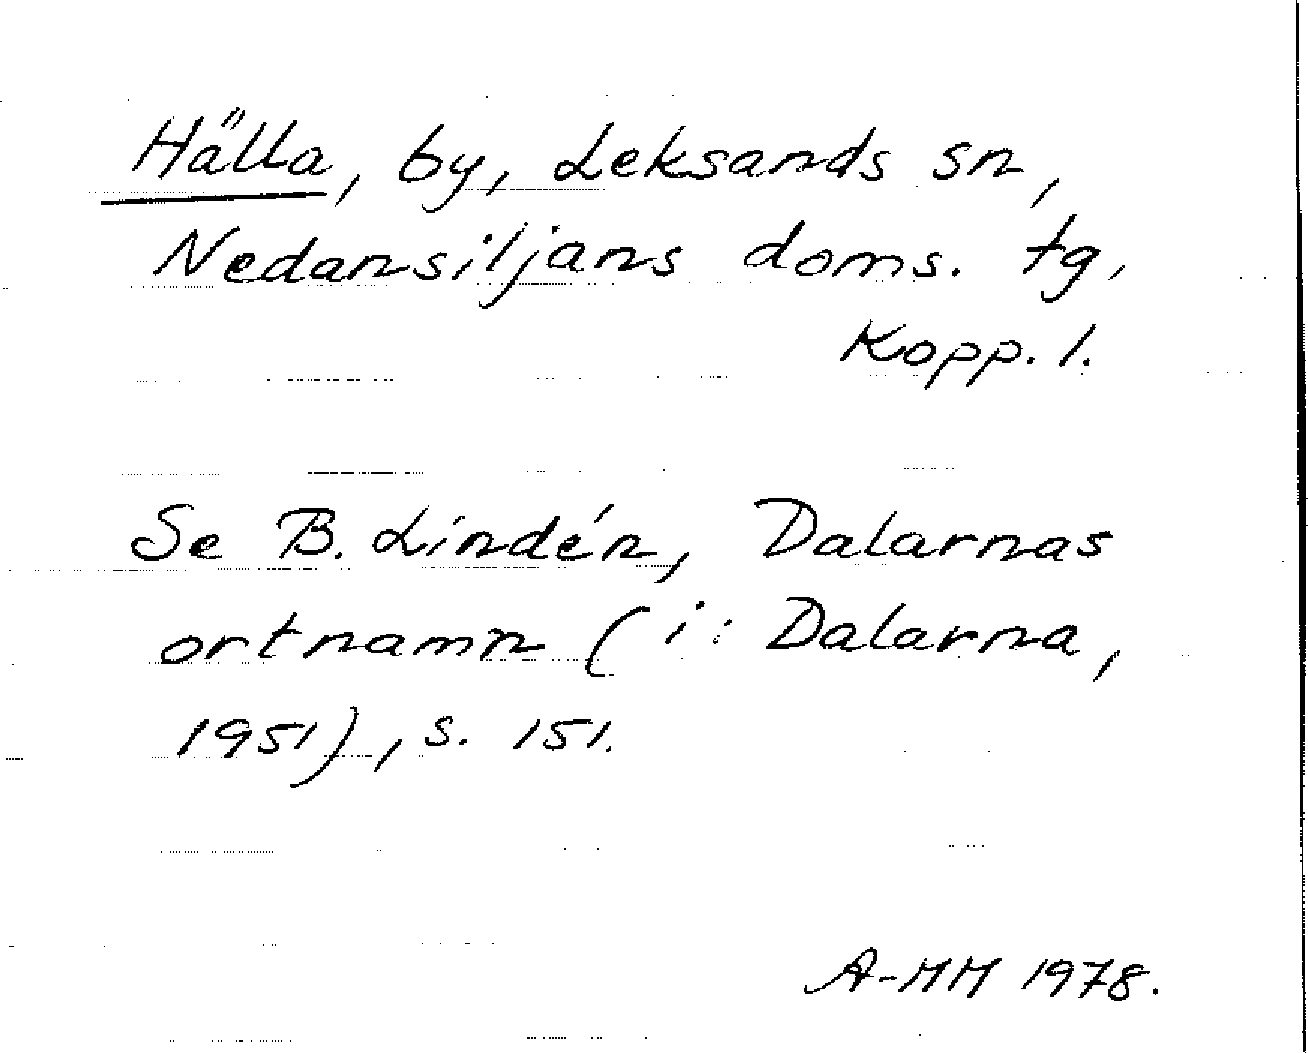 Hälla, by, Leksands sn,
Nedansiljans doms. tg,
Kopp. l.
Se B. Lindén, Dalarnas
ortnamn (i: Dalarna,
1951), s. 151.
A-MM 1978.